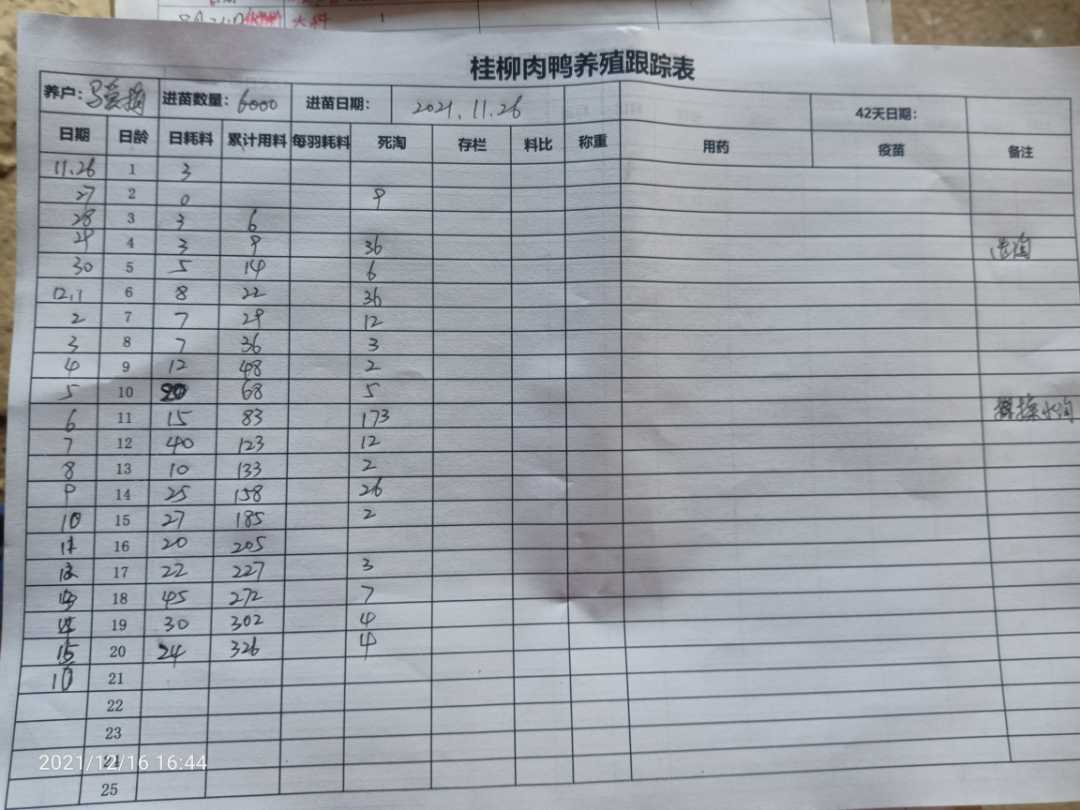 大料 1
桂柳肉鸭养殖跟踪表
养户: 进苗数量: 6000 进苗日期: 2021.11.26 42天日期:
日期 日龄 日耗料 累计用料 每羽耗料 死淘 存栏 料比 称重 用药 疫苗 备注
11.26 1 3
27 2 0 9
28 3 3 6
29 4 3 9 36
30 5 5 14 6
12.1 6 8 22 36
2 7 7 29 12
3 8 7 36 3
4 9 12 48 2
5 10 20 68 5
6 11 15 83 173
7 12 40 123 12
8 13 10 133 2
9 14 25 158 26
10 15 27 185 2
11 16 20 205
12 17 22 227 3
13 18 45 272 7
14 19 30 302 4
15 20 24 326 4
10 21
22
23
24
25
2021/12/16 16:44